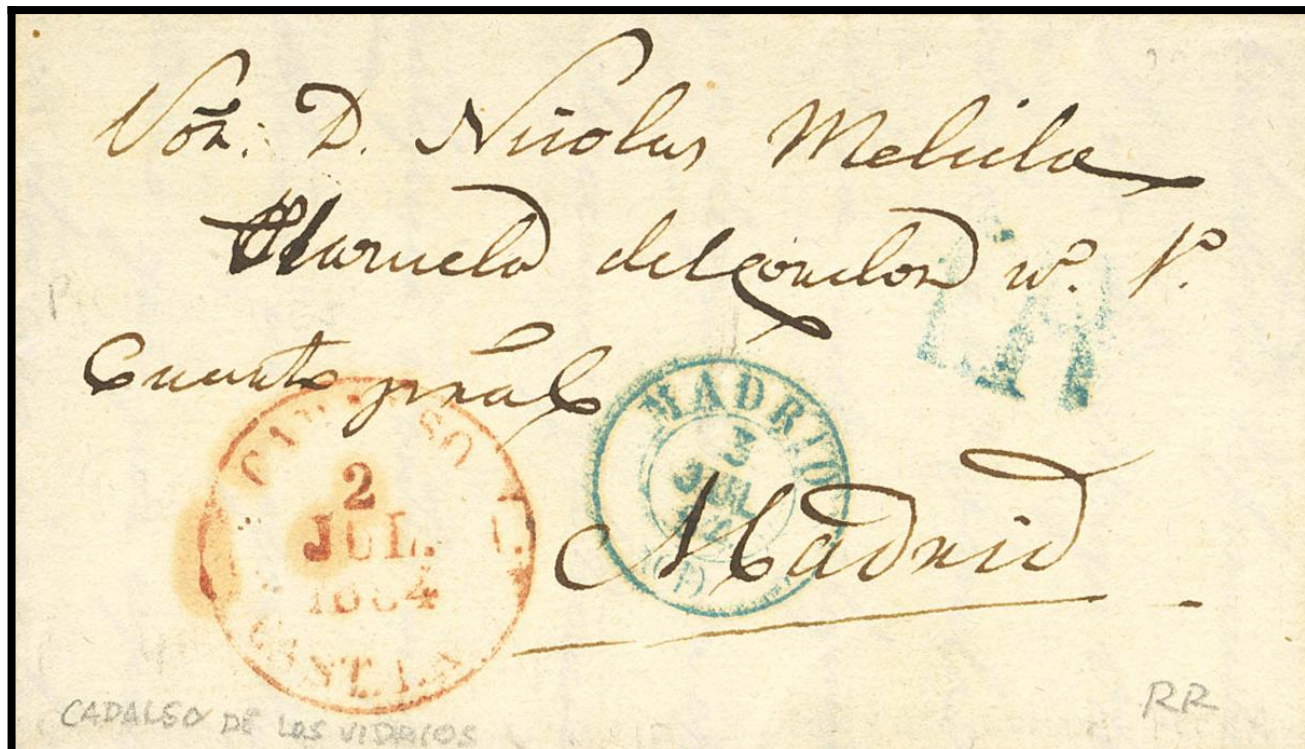 Sör. D. Nicolas Melida
Plazuela del Cordon nº. 1º.
Cuarto pral
2
JUL.
1854
CAST. LA N
MADRID
3
JUL
Madrid
CADALSO DE LOS VIDRIOS
RR